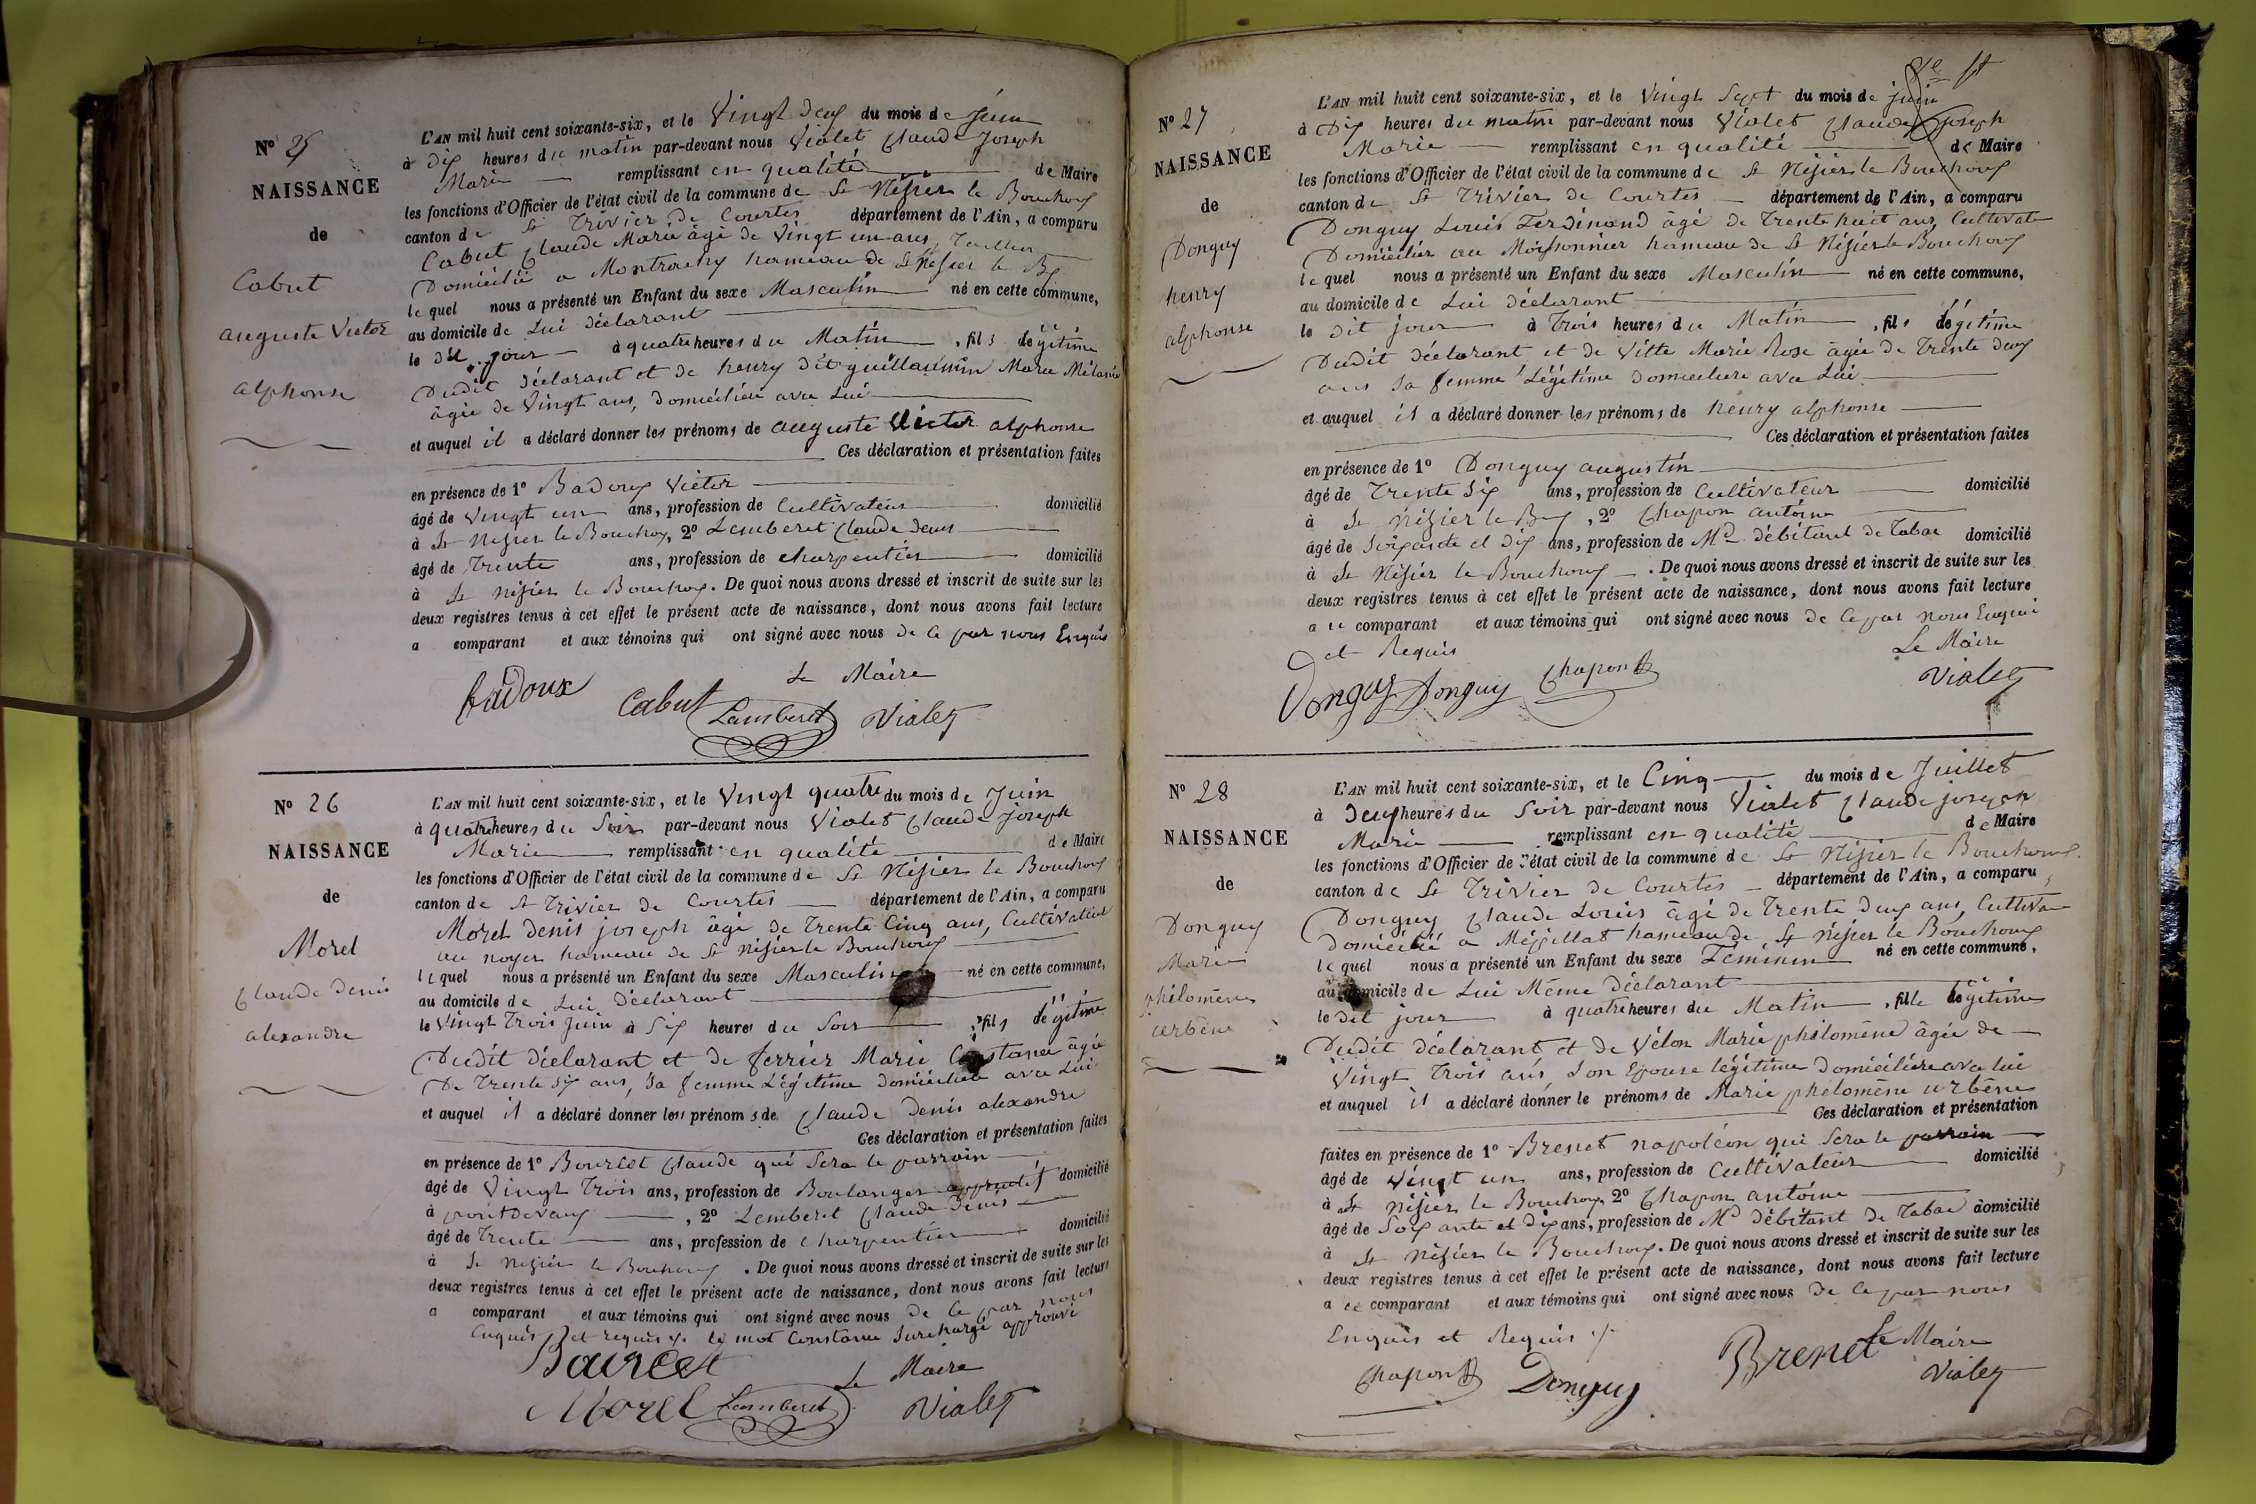 N° 25
NAISSANCE
de
Cabut
auguste Victor
alphonse
L'AN mil huit cent soixante-six, et le Vingt deux du mois de juin
à dix heures du matin par-devant nous Vialet Claude Joseph
Marie remplissant en qualité de Maire
les fonctions d'Officier de l'état civil de la commune de St Nizier le Bouchoux
canton de St Trivier de Courtes département de l'Ain, a comparu
Cabut Claude Marie âgé de Vingt un ans, Tailleur
Domicilié a Montrachy hameau de St Nizier le Bx
lequel nous a présenté un Enfant du sexe Masculin né en cette commune,
au domicile de Lui déclarant
le dit jour à quatre heures du Matin, fils légitime
Dudit déclarant et de henry dit guillaumin Marie Mélanie
âgée de Vingt ans, domiciliée avec Lui
et auquel il a déclaré donner les prénoms de auguste Victor alphonse
Ces déclaration et présentation faites
en présence de 1° Badoux Victor
âgé de Vingt un ans, profession de Cultivateur domicilié
à St Nizier le Bouchox, 2° Lemberet Claude denis
âgé de Trente ans, profession de charpentier domicilié
à St Nizier le Bouchox. De quoi nous avons dressé et inscrit de suite sur les
deux registres tenus à cet effet le présent acte de naissance, dont nous avons fait lecture
a comparant et aux témoins qui ont signé avec nous de ce par nous Enquis
Le Maire
Badoux Cabut Lamberet Vialet
N° 26
NAISSANCE
de
Morel
Claude Denis
alexandre
L'AN mil huit cent soixante-six, et le Vingt quatre du mois de Juin
à quatre heures du Soir par-devant nous Vialet Claude Joseph
Marie remplissant en qualité de Maire
les fonctions d'Officier de l'état civil de la commune de St Nizier le Bouchoux
canton de St Trivier de Courtes département de l'Ain, a comparu
Morel denis joseph âgé de Trente Cinq ans, Cultivateur
au noyer hameau de St Nizier le Bouchoux
lequel nous a présenté un Enfant du sexe Masculin né en cette commune,
au domicile de Lui déclarant
le Vingt Trois Juin à Six heures du Soir, fils légitime
Dudit déclarant et de ferrier Marie Constance âgée
De Trente Six ans, Sa femme Légitime domiciliée avec Lui
et auquel il a déclaré donner les prénoms de Claude Denis alexandre
Ces déclaration et présentation faites
en présence de 1° Bourcet Claude qui Sera le parrain
âgé de Vingt Trois ans, profession de Boulanger domicilié
à pontdevaux, 2° Lemberet Claude Denis
âgé de Trente ans, profession de charpentier domicilié
à St Nizier le Bouchoux. De quoi nous avons dressé et inscrit de suite sur les
deux registres tenus à cet effet le présent acte de naissance, dont nous avons fait lecture
a comparant et aux témoins qui ont signé avec nous de ce par nous
Enquis et requis ./. le mot Constance Surchargé approuvé
Bourcet Le Maire
Morel Lamberet Vialet
N° 27
NAISSANCE
de
Donguy
henry
alphonse
L'AN mil huit cent soixante-six, et le Vingt Sept du mois de juin
à Dix heures du matin par-devant nous Vialet Claude Joseph
Marie remplissant en qualité de Maire
les fonctions d'Officier de l'état civil de la commune de St Nizier le Bouchoux
canton de St Trivier de Courtes département de l'Ain, a comparu
Donguy Louis Ferdinand âgé de Trente huit ans, Cultivate
Domicilié au Moissonnier hameau de St Nizier le Bouchoux
lequel nous a présenté un Enfant du sexe Masculin né en cette commune,
au domicile de Lui déclarant
le dit jour à Trois heures du Matin, fils légitime
Dudit déclarant et de Vitte Marie Rose âgée de Trente deux
ans Sa femme Légitime domiciliée avec Lui
et auquel il a déclaré donner les prénoms de henry alphonse
Ces déclaration et présentation faites
en présence de 1° Donguy augustin
âgé de Trente Six ans, profession de Cultivateur domicilié
à St Nizier le Bx, 2° Chapon antoine
âgé de Soixante et dix ans, profession de Md débitant de Tabac domicilié
à St Nizier le Bouchoux. De quoi nous avons dressé et inscrit de suite sur les
deux registres tenus à cet effet le présent acte de naissance, dont nous avons fait lecture
a ce comparant et aux témoins qui ont signé avec nous de ce par nous Enquis
et Requis Le Maire
Donguy Donguy Chapon Vialet
N° 28
NAISSANCE
de
Donguy
Marie
philomène
urbène
L'AN mil huit cent soixante-six, et le Cinq du mois de Juillet
à deux heures du Soir par-devant nous Vialet Claude joseph
Marie remplissant en qualité de Maire
les fonctions d'Officier de l'état civil de la commune de St Nizier le Bouchoux
canton de St Trivier de Courtes département de l'Ain, a comparu
Donguy Claude Louis âgé de Trente deux ans, Cultiva
Domicilié a Mépillat hameau de St Nizier le Bouchoux
lequel nous a présenté un Enfant du sexe Féminin né en cette commune,
au domicile de Lui Même déclarant
le dit jour à quatre heures du Matin, fille légitime
Dudit déclarant et de Vélon Marie philomène âgée de
Vingt Trois ans, Son Epouse légitime domiciliée avec lui
et auquel il a déclaré donner le prénoms de Marie philomène urbène
Ces déclaration et présentation
faites en présence de 1° Brenet napoléon qui Sera le parrain
âgé de Vingt un ans, profession de Cultivateur domicilié
à St Nizier le Bouchoux 2° Chapon antoine
âgé de Soixante et dix ans, profession de Md débitant de Tabac domicilié
à St Nizier le Bouchoux. De quoi nous avons dressé et inscrit de suite sur les
deux registres tenus à cet effet le présent acte de naissance, dont nous avons fait lecture
a ce comparant et aux témoins qui ont signé avec nous de ce par nous
Enquis et Requis ./.
Chapon Donguy Brenet Le Maire
Vialet